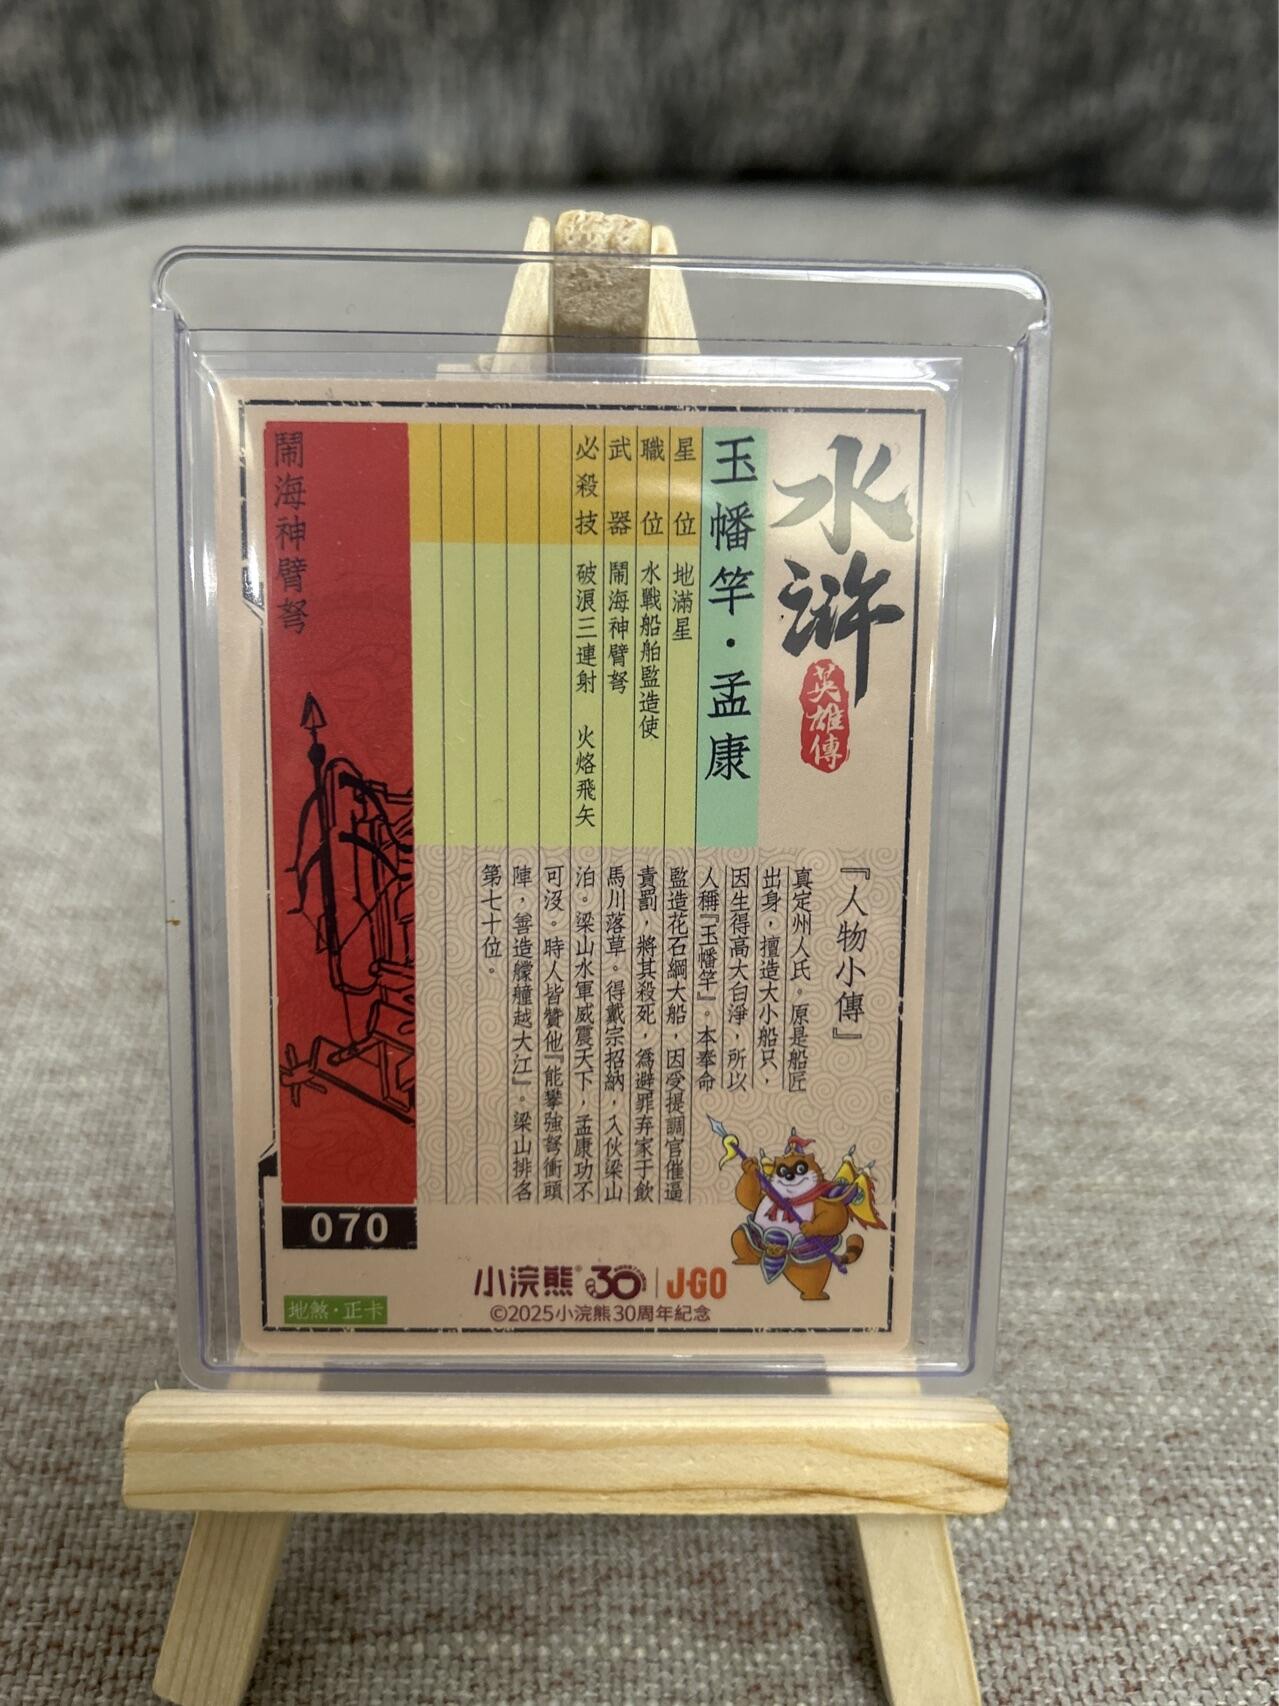 水滸
英雄傳
玉幡竿·孟康
星位 地滿星
職位 水戰船舶監造使
武器 鬧海神臂弩
必殺技 破浪三連射 火烙飛矢
『人物小傳』
真定州人氏。原是船匠
出身，擅造大小船只，
因生得高大白淨，所以
人稱『玉幡竿』。本奉命
監造花石綱大船，因受提調官催逼
責罰，將其殺死，為避罪弃家于飲
馬川落草。得戴宗招納，入伙梁山
泊。梁山水軍威震天下，孟康功不
可沒。時人皆贊他『能攀強弩衝頭
陣，善造艨艟越大江』。梁山排名
第七十位。
鬧海神臂弩
070
地煞·正卡
小浣熊® 30 | J·GO
©2025小浣熊30周年紀念